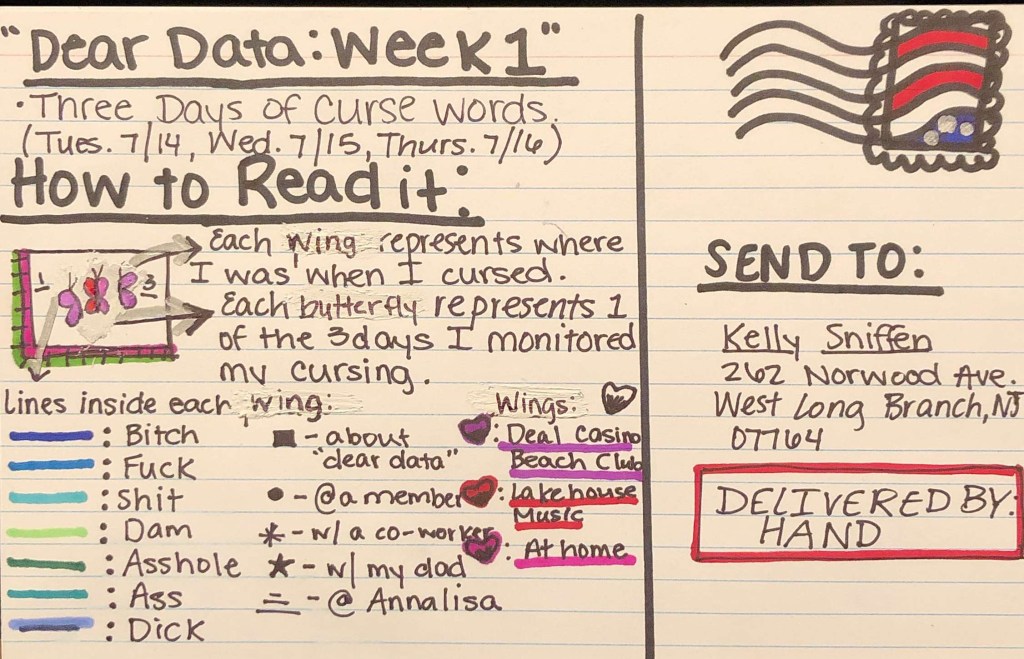 "Dear Data: Week 1"
• Three Days of Curse Words.
(Tues. 7/14, Wed. 7/15, Thurs. 7/16)
How to Read it:
Each wing represents where
I was when I cursed.
Each butterfly represents 1
of the 3 days I monitored
my cursing.
1
3
lines inside each wing:
: Bitch
: Fuck
: Shit
: Dam
: Asshole
: Ass
: Dick
- about
"dear data"
- @ a member
- w/ a co-worker
- w/ my dad
- @ Annalisa
Wings:
: Deal Casino
Beach Club
: Lakehouse
Music
: At home
SEND TO:
Kelly Sniffen
262 Norwood Ave.
West Long Branch, NJ
07764
DELIVERED BY:
HAND